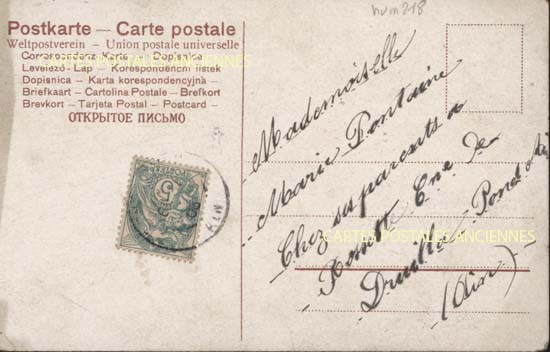 hum 218
Postkarte — Carte postale
Weltpostverein — Union postale universelle
Correspondenz-Karte — Dopisnice
Levelező-Lap — Korespondenční lístek
Dopisnica — Karta korespondencyjna
Briefkaart — Cartolina Postale — Brefkort
Brevkort — Tarjeta Postal — Postcard
ОТКРЫТОЕ ПИСЬМО
CARTES POSTALES ANCIENNES
POSTES
5
Mademoiselle
Marie Fontaine
Chez ses parents a
de
CARTES POSTALES ANCIENNES
Pond
(Ain)